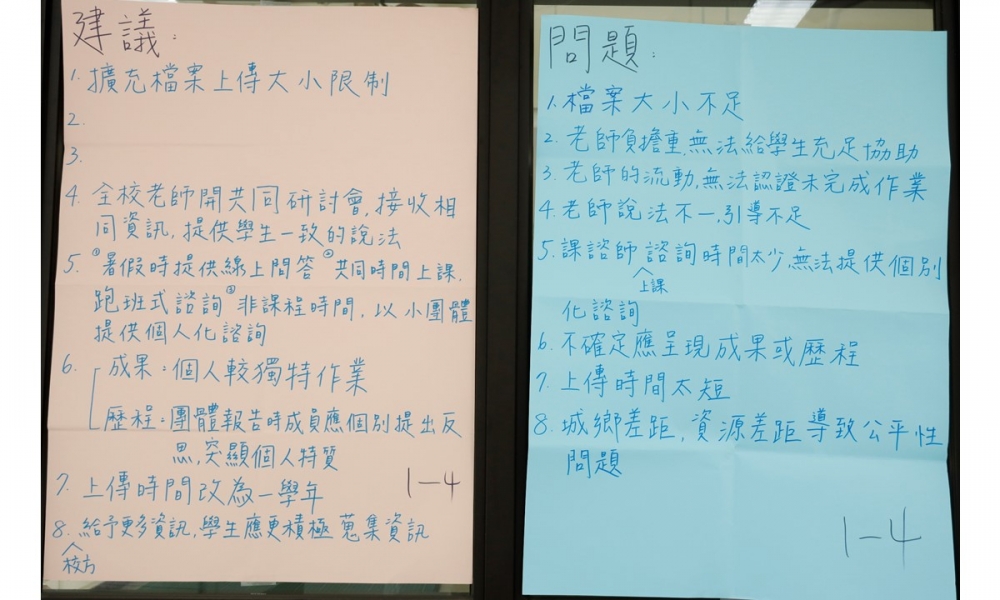 建議：
1. 擴充檔案上傳大小限制
2.
3.
4. 全校老師開共同研討會,接收相
同資訊,提供學生一致的說法
5. ①暑假時提供線上問答 ②共同時間上課,
跑班式諮詢 ③非課程時間,以小團體
提供個人化諮詢
6. 成果：個人較獨特作業
歷程：團體報告時成員應個別提出反
思,突顯個人特質
7. 上傳時間改為一學年
1-4
8. 給予更多資訊,學生應更積極蒐集資訊
校方
問題：
1. 檔案大小不足
2. 老師負擔重,無法給學生充足協助
3. 老師的流動,無法認證未完成作業
4. 老師說法不一,引導不足
5. 課諮師諮詢時間太少,無法提供個別
上課
化諮詢
6. 不確定應呈現成果或歷程
7. 上傳時間太短
8. 城鄉差距,資源差距導致公平性
問題
1-4